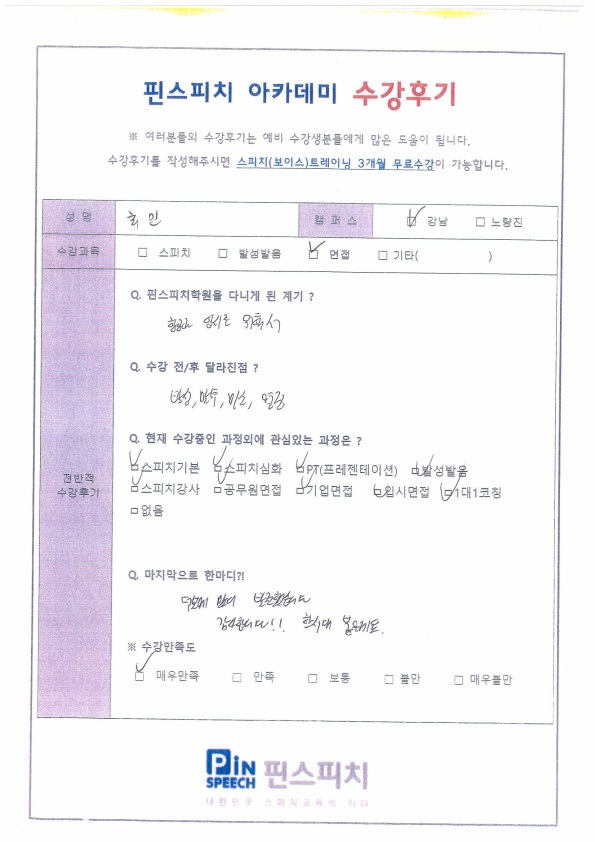 핀스피치 아카데미 수강후기
※ 여러분들의 수강후기는 예비 수강생분들에게 많은 도움이 됩니다.
수강후기를 작성해주시면 스피치(보이스)트레이닝 3개월 무료수강이 가능합니다.
성 명 캠 퍼 스 ☑ 강남 □ 노량진
수강과목 □ 스피치 □ 발성발음 ☑ 면접 □ 기타( )
Q. 핀스피치학원을 다니게 된 계기 ?
입시를 위해서
Q. 수강 전/후 달라진점 ?
발성, 말투, 미소, 열정
Q. 현재 수강중인 과정외에 관심있는 과정은 ?
☑스피치기본 ☑스피치심화 ☑PT(프레젠테이션) ☑발성발음
전반적
수강후기
☑스피치강사 ☑공무원면접 ☑기업면접 ☑입시면접 ☑1대1코칭
□없음
Q. 마지막으로 한마디?!
덕분에 많이 발전했습니다
감사합니다!!
※ 수강만족도
☑ 매우만족 □ 만족 □ 보통 □ 불만 □ 매우불만
PiN
SPEECH 핀스피치
대한민국 스피치교육의 리더